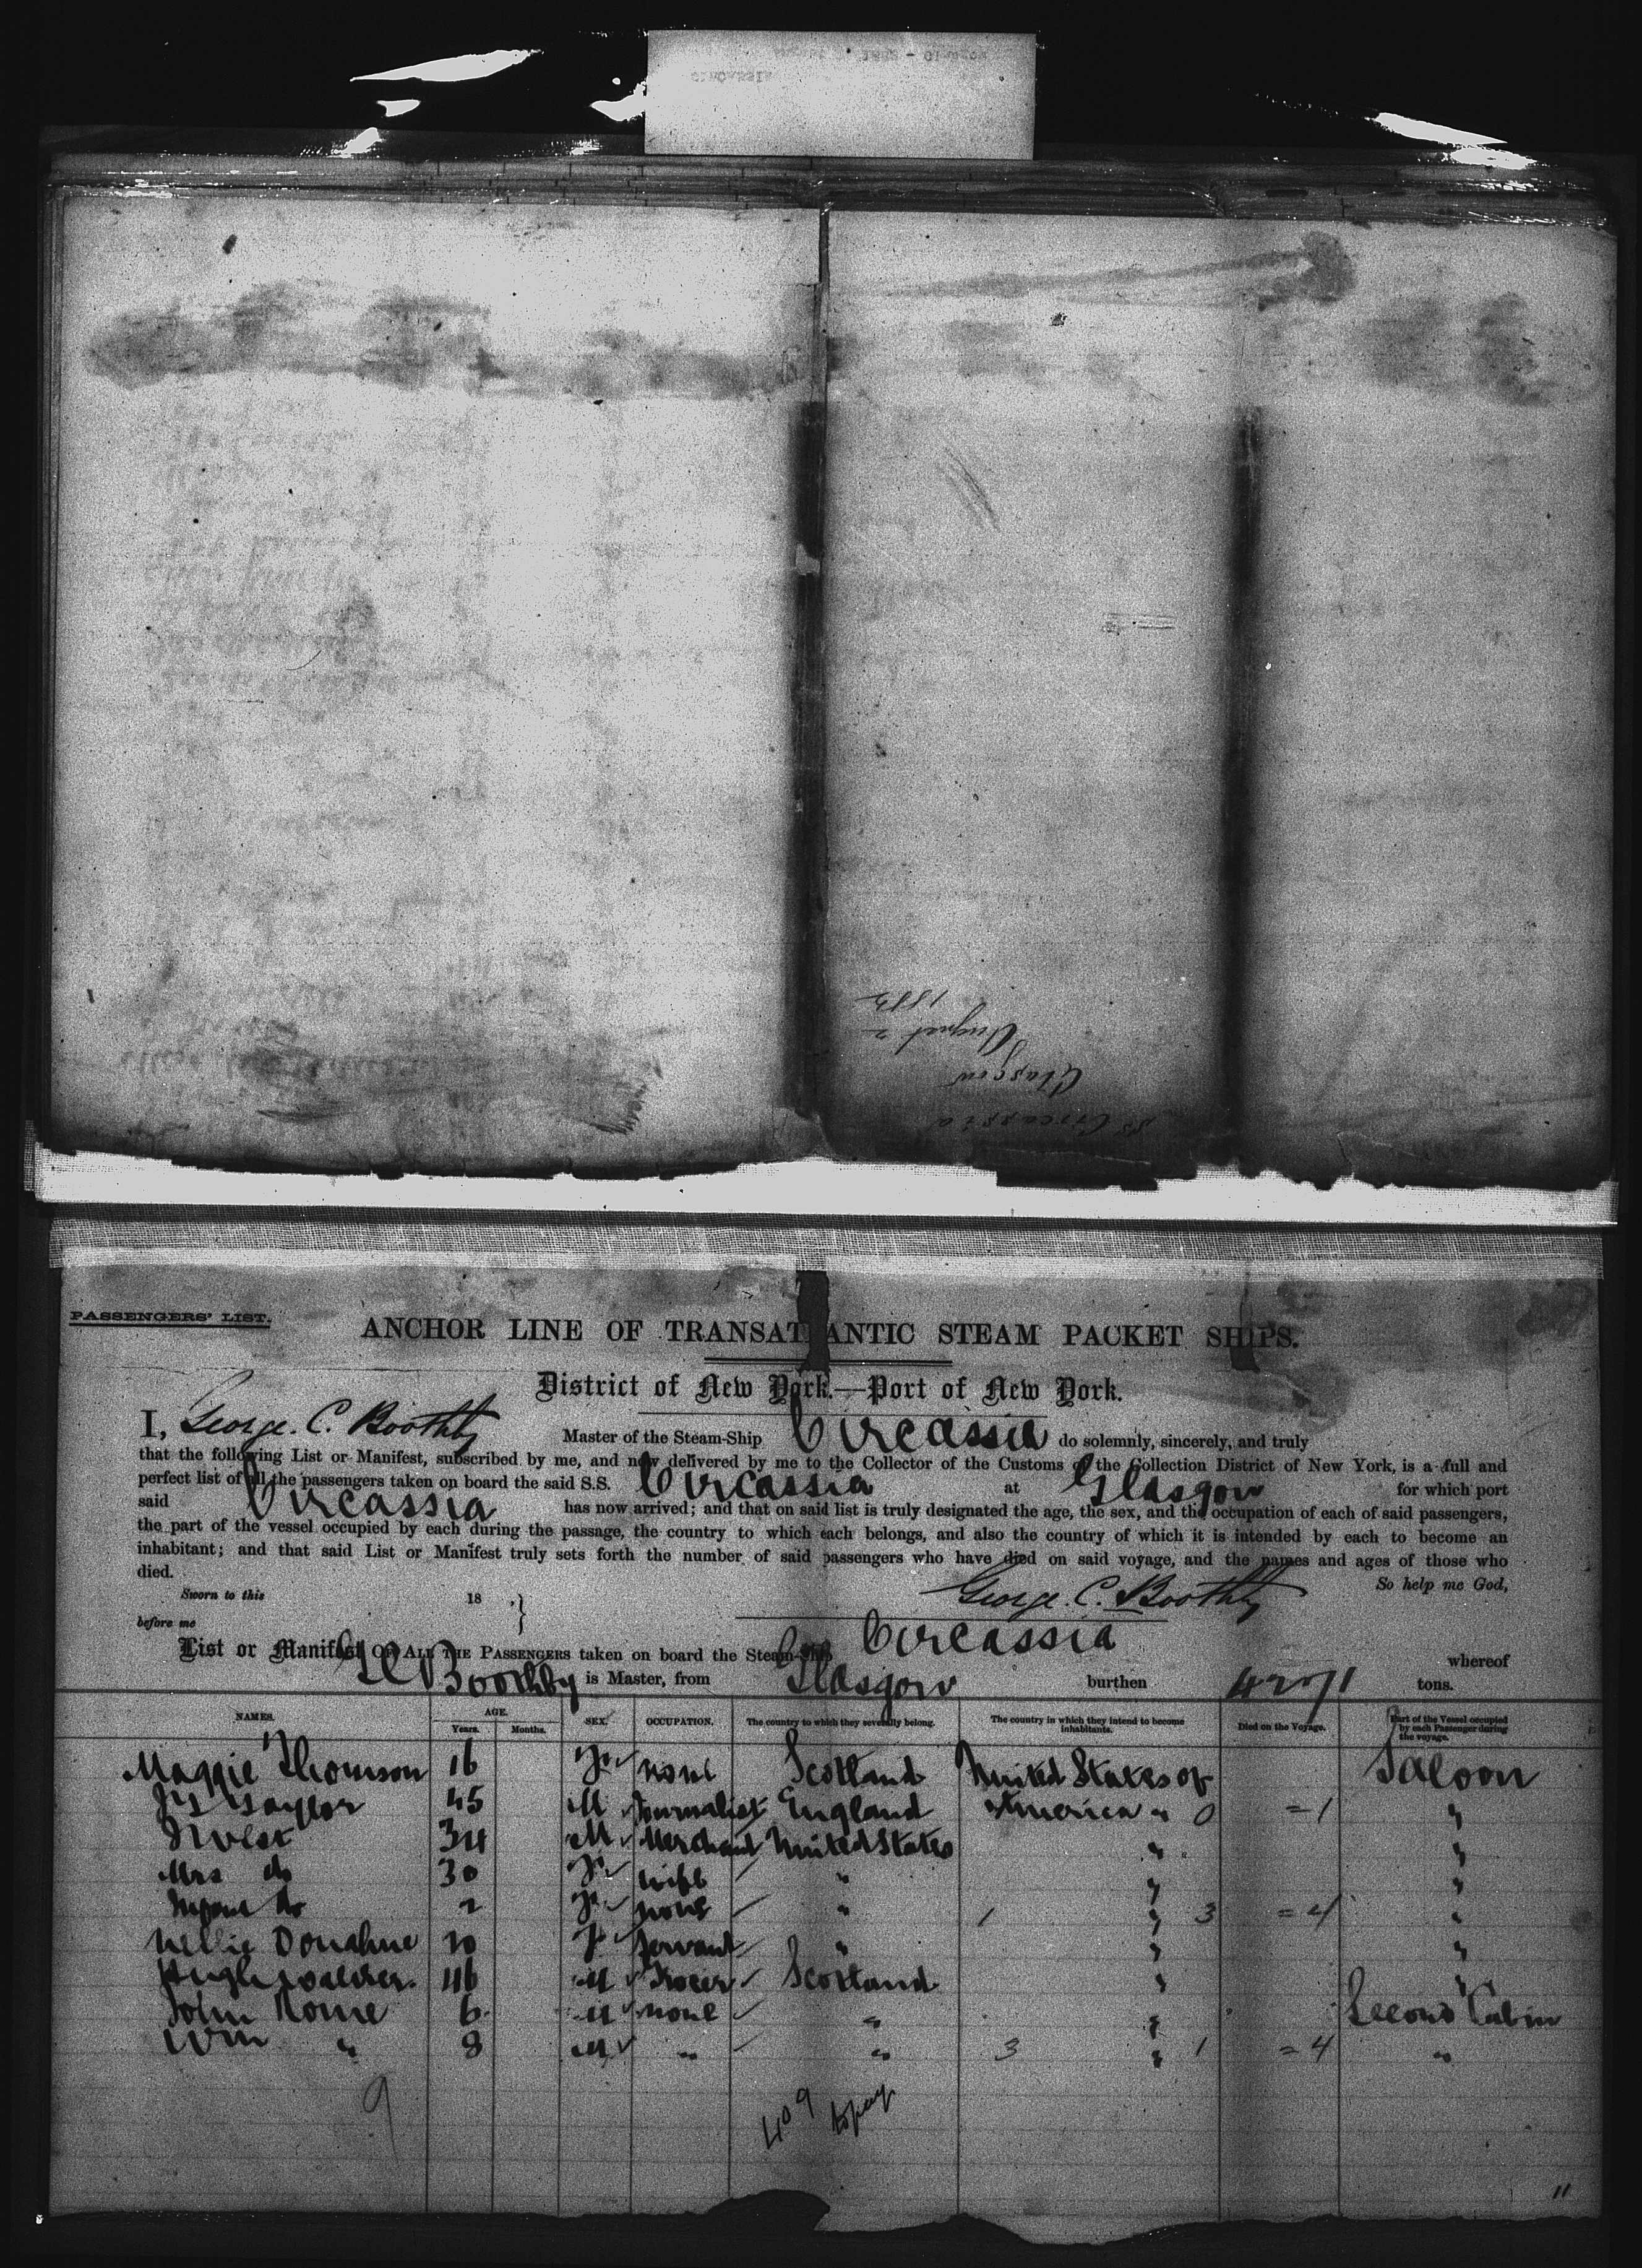 CIRCASSIA
SS Circassia
Glasgow
August 2
PASSENGERS' LIST.
ANCHOR LINE OF TRANSATLANTIC STEAM PACKET SHIPS.
District of New York.—Port of New York.
I, George. C. Boothby Master of the Steam-Ship Circassia do solemnly, sincerely, and truly
that the following List or Manifest, subscribed by me, and now delivered by me to the Collector of the Customs of the Collection District of New York, is a full and
perfect list of all the passengers taken on board the said S.S. Circassia at Glasgow for which port
said Circassia has now arrived; and that on said list is truly designated the age, the sex, and the occupation of each of said passengers,
the part of the vessel occupied by each during the passage, the country to which each belongs, and also the country of which it is intended by each to become an
inhabitant; and that said List or Manifest truly sets forth the number of said passengers who have died on said voyage, and the names and ages of those who
died.
So help me God,
Sworn to this 18
George. C. Boothby
before me
List or Manifest OF ALL THE PASSENGERS taken on board the Steam-Ship Circassia whereof
Boothby is Master, from Glasgow burthen 4271 tons.
NAMES. AGE. Years. Months. SEX. OCCUPATION. The country to which they severally belong. The country in which they intend to become inhabitants. Died on the Voyage. Part of the Vessel occupied by each Passenger during the voyage.
Maggie Thomson 16 F none Scotland United States of Saloon
Taylor 45 M Journalist England America " 0 =1 "
34 M Merchant United States " "
Mrs do 30 F wife " " "
do 2 F none " 1 " 3 =4 "
Nellie Donahue 20 F Servant " " "
Hugh Walker. 46 M Grocer Scotland " "
John Rome 6 M none " " Second Cabin
Wm " 8 M " " 3 " 1 =4 "
9
409
11